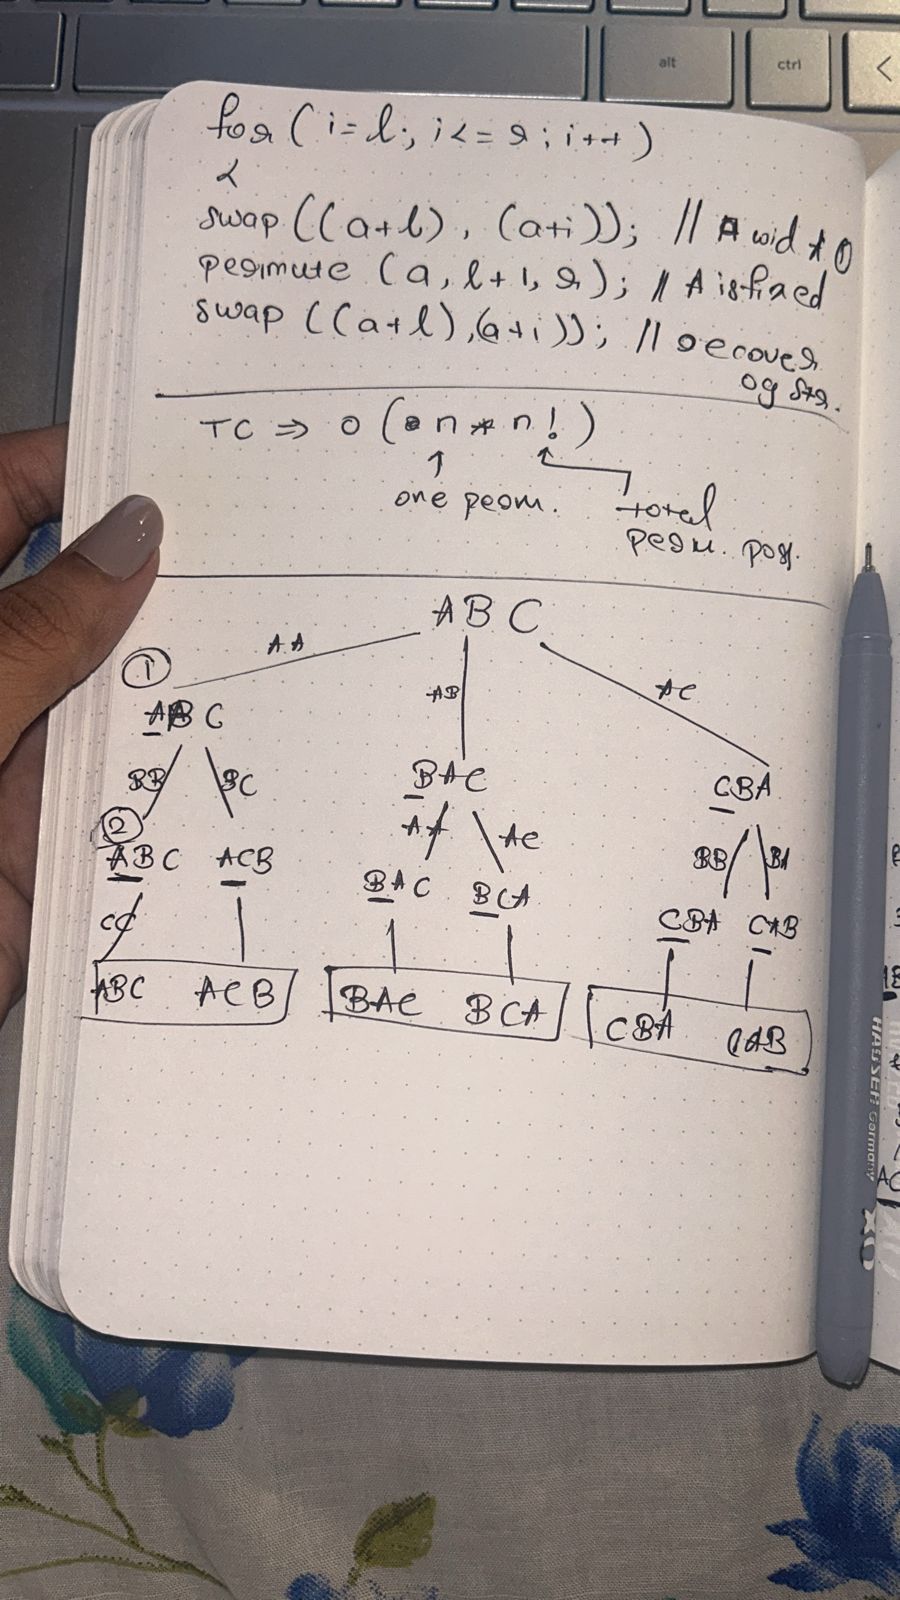 alt
ctrl
<
for ( i = l ; i <= r ; i++ )
{
swap ((a+l) , (a+i)); // A wid * ①
permute (a, l+1, r); // A is fixed
swap ((a+l),(a+i)); // recover
og str.
TC ⇒ O ( n * n ! )
↑
one perm.
total
perm. poss.
A B C
AA
①
AB
AC
ABC
BB
BC
BAC
CBA
②
AA
AC
BB
BA
ABC
ACB
BAC
BCA
CBA
CAB
CC
ABC
ACB
BAC
BCA
CBA
CAB
HAUSER Germany
XO